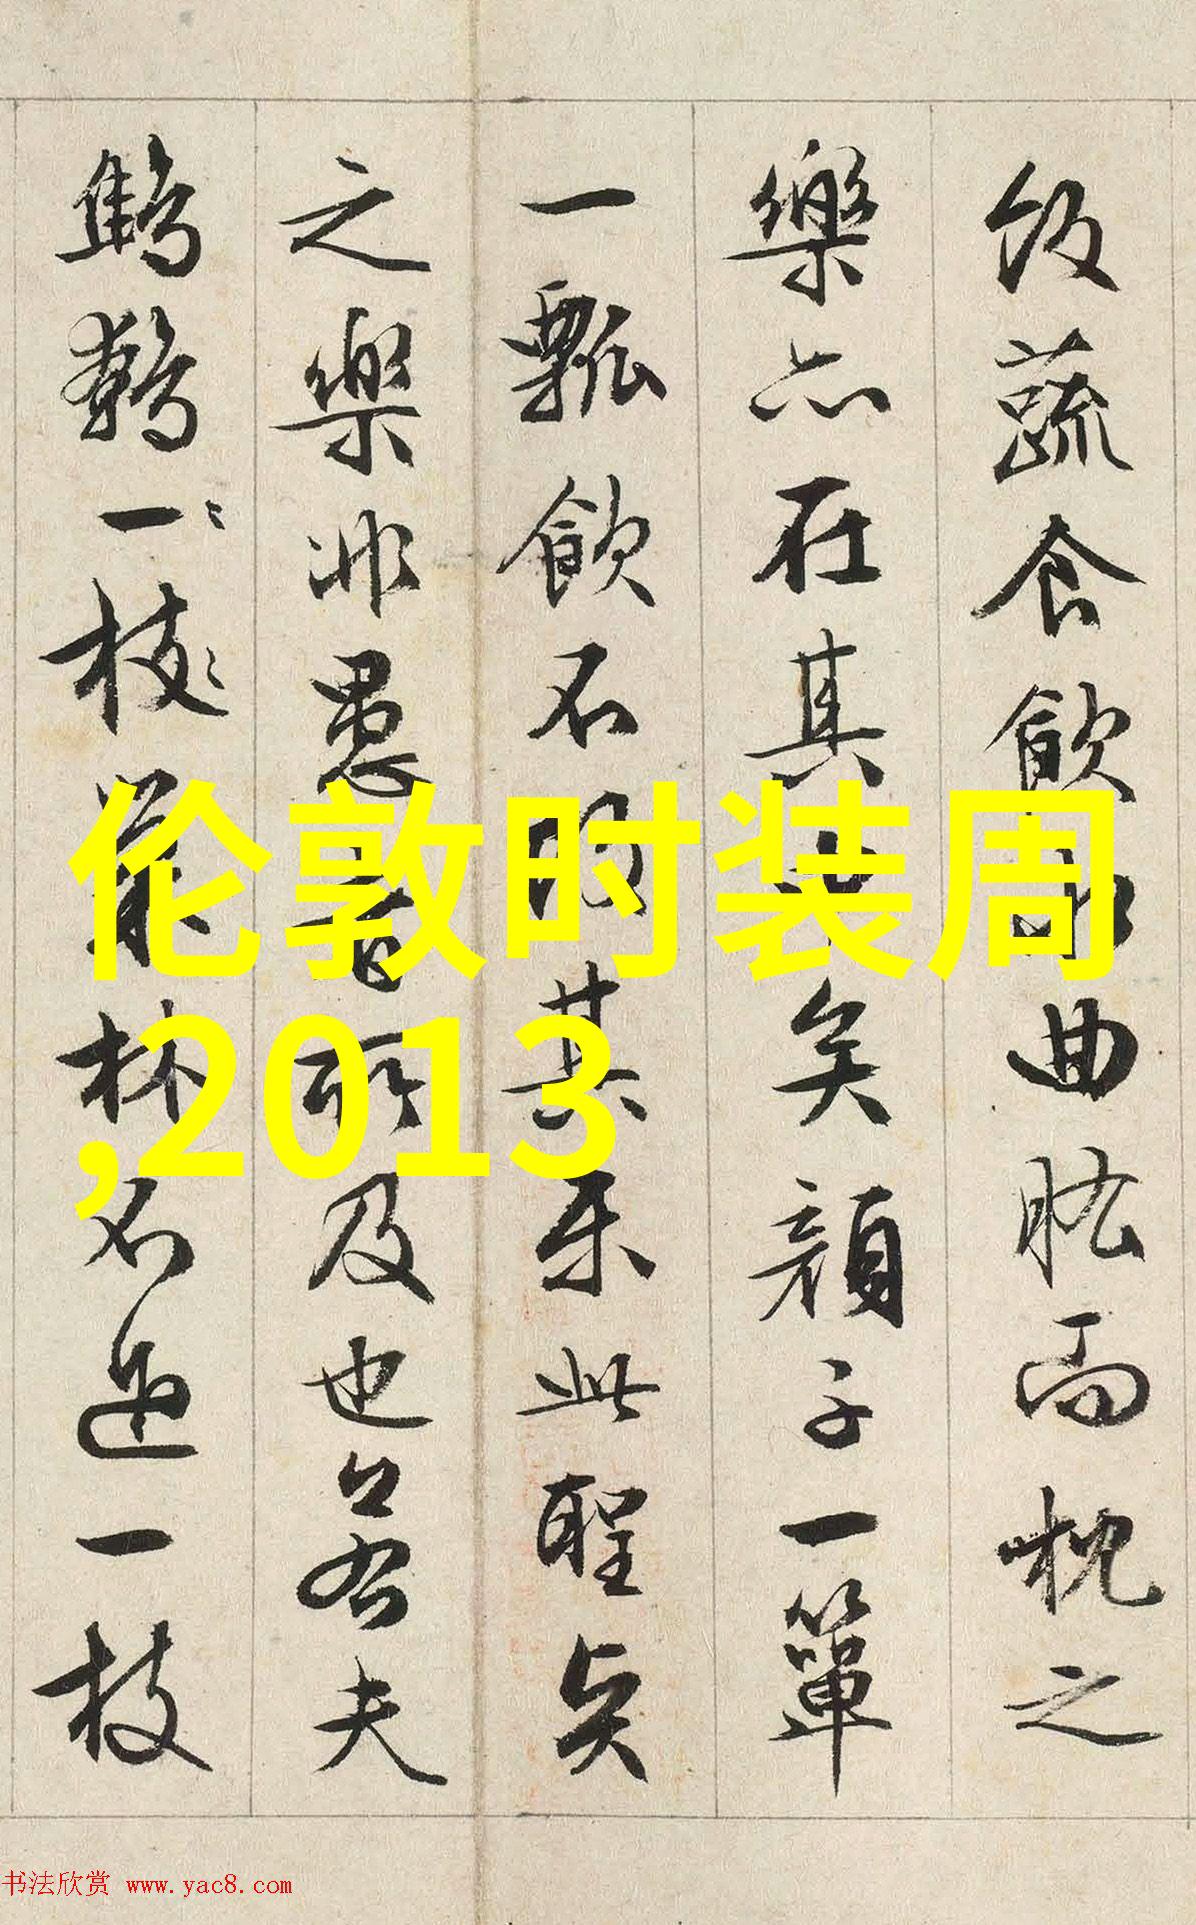 飯蔬食飲水曲肱而枕之
樂亦在其中矣顏子一簞
一瓢飲不改其樂此聖賢
之樂非愚者所及也若夫
鷦鷯一枝巢林不過一枝
伦敦时装周
,2013
书法欣赏 www.yac8.com